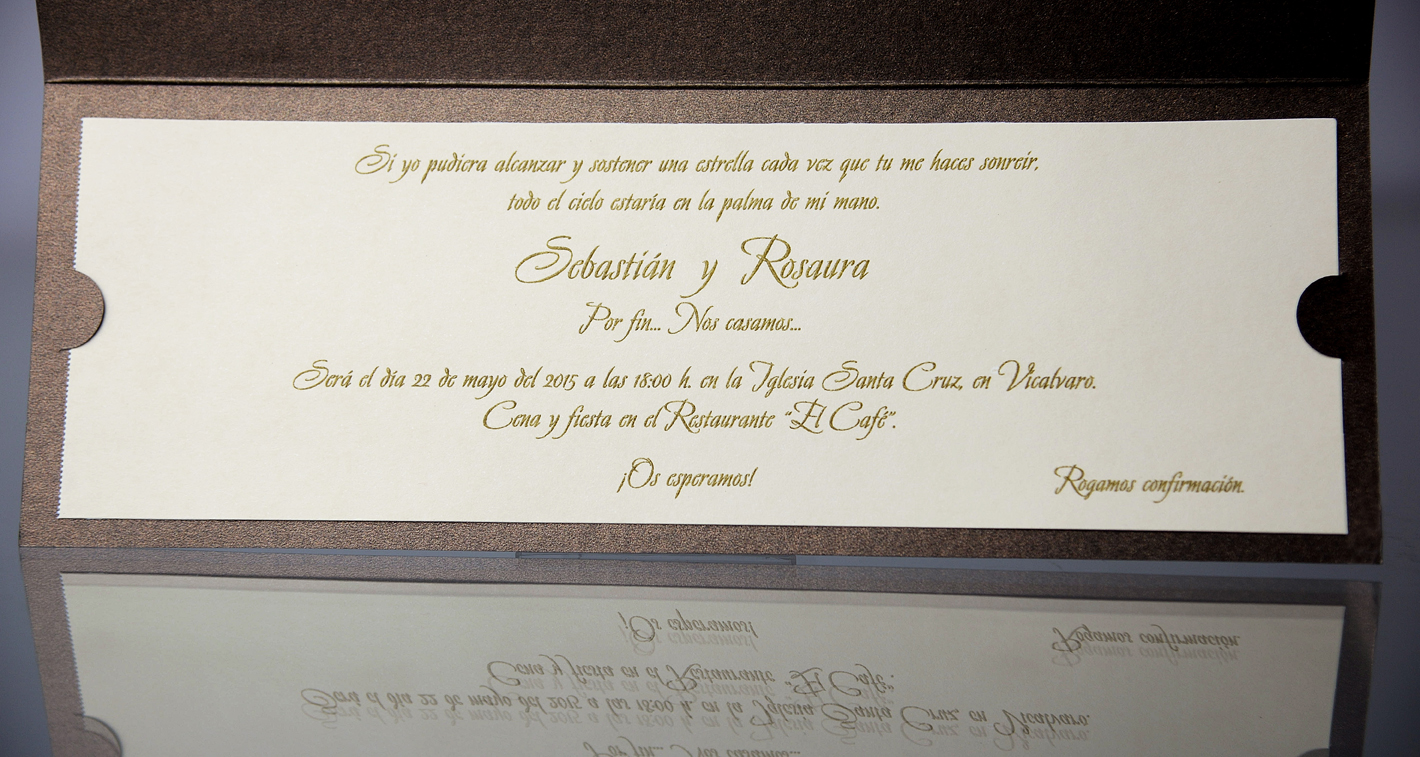 Si yo pudiera alcanzar y sostener una estrella cada vez que tu me haces sonreir,
todo el cielo estaría en la palma de mi mano.
Sebastián y Rosaura
Por fin... Nos casamos...
Será el día 22 de mayo del 2015 a las 18:00 h. en la Iglesia Santa Cruz, en Vicalvaro.
Cena y fiesta en el Restaurante “El Café”.
¡Os esperamos!
Rogamos confirmación.